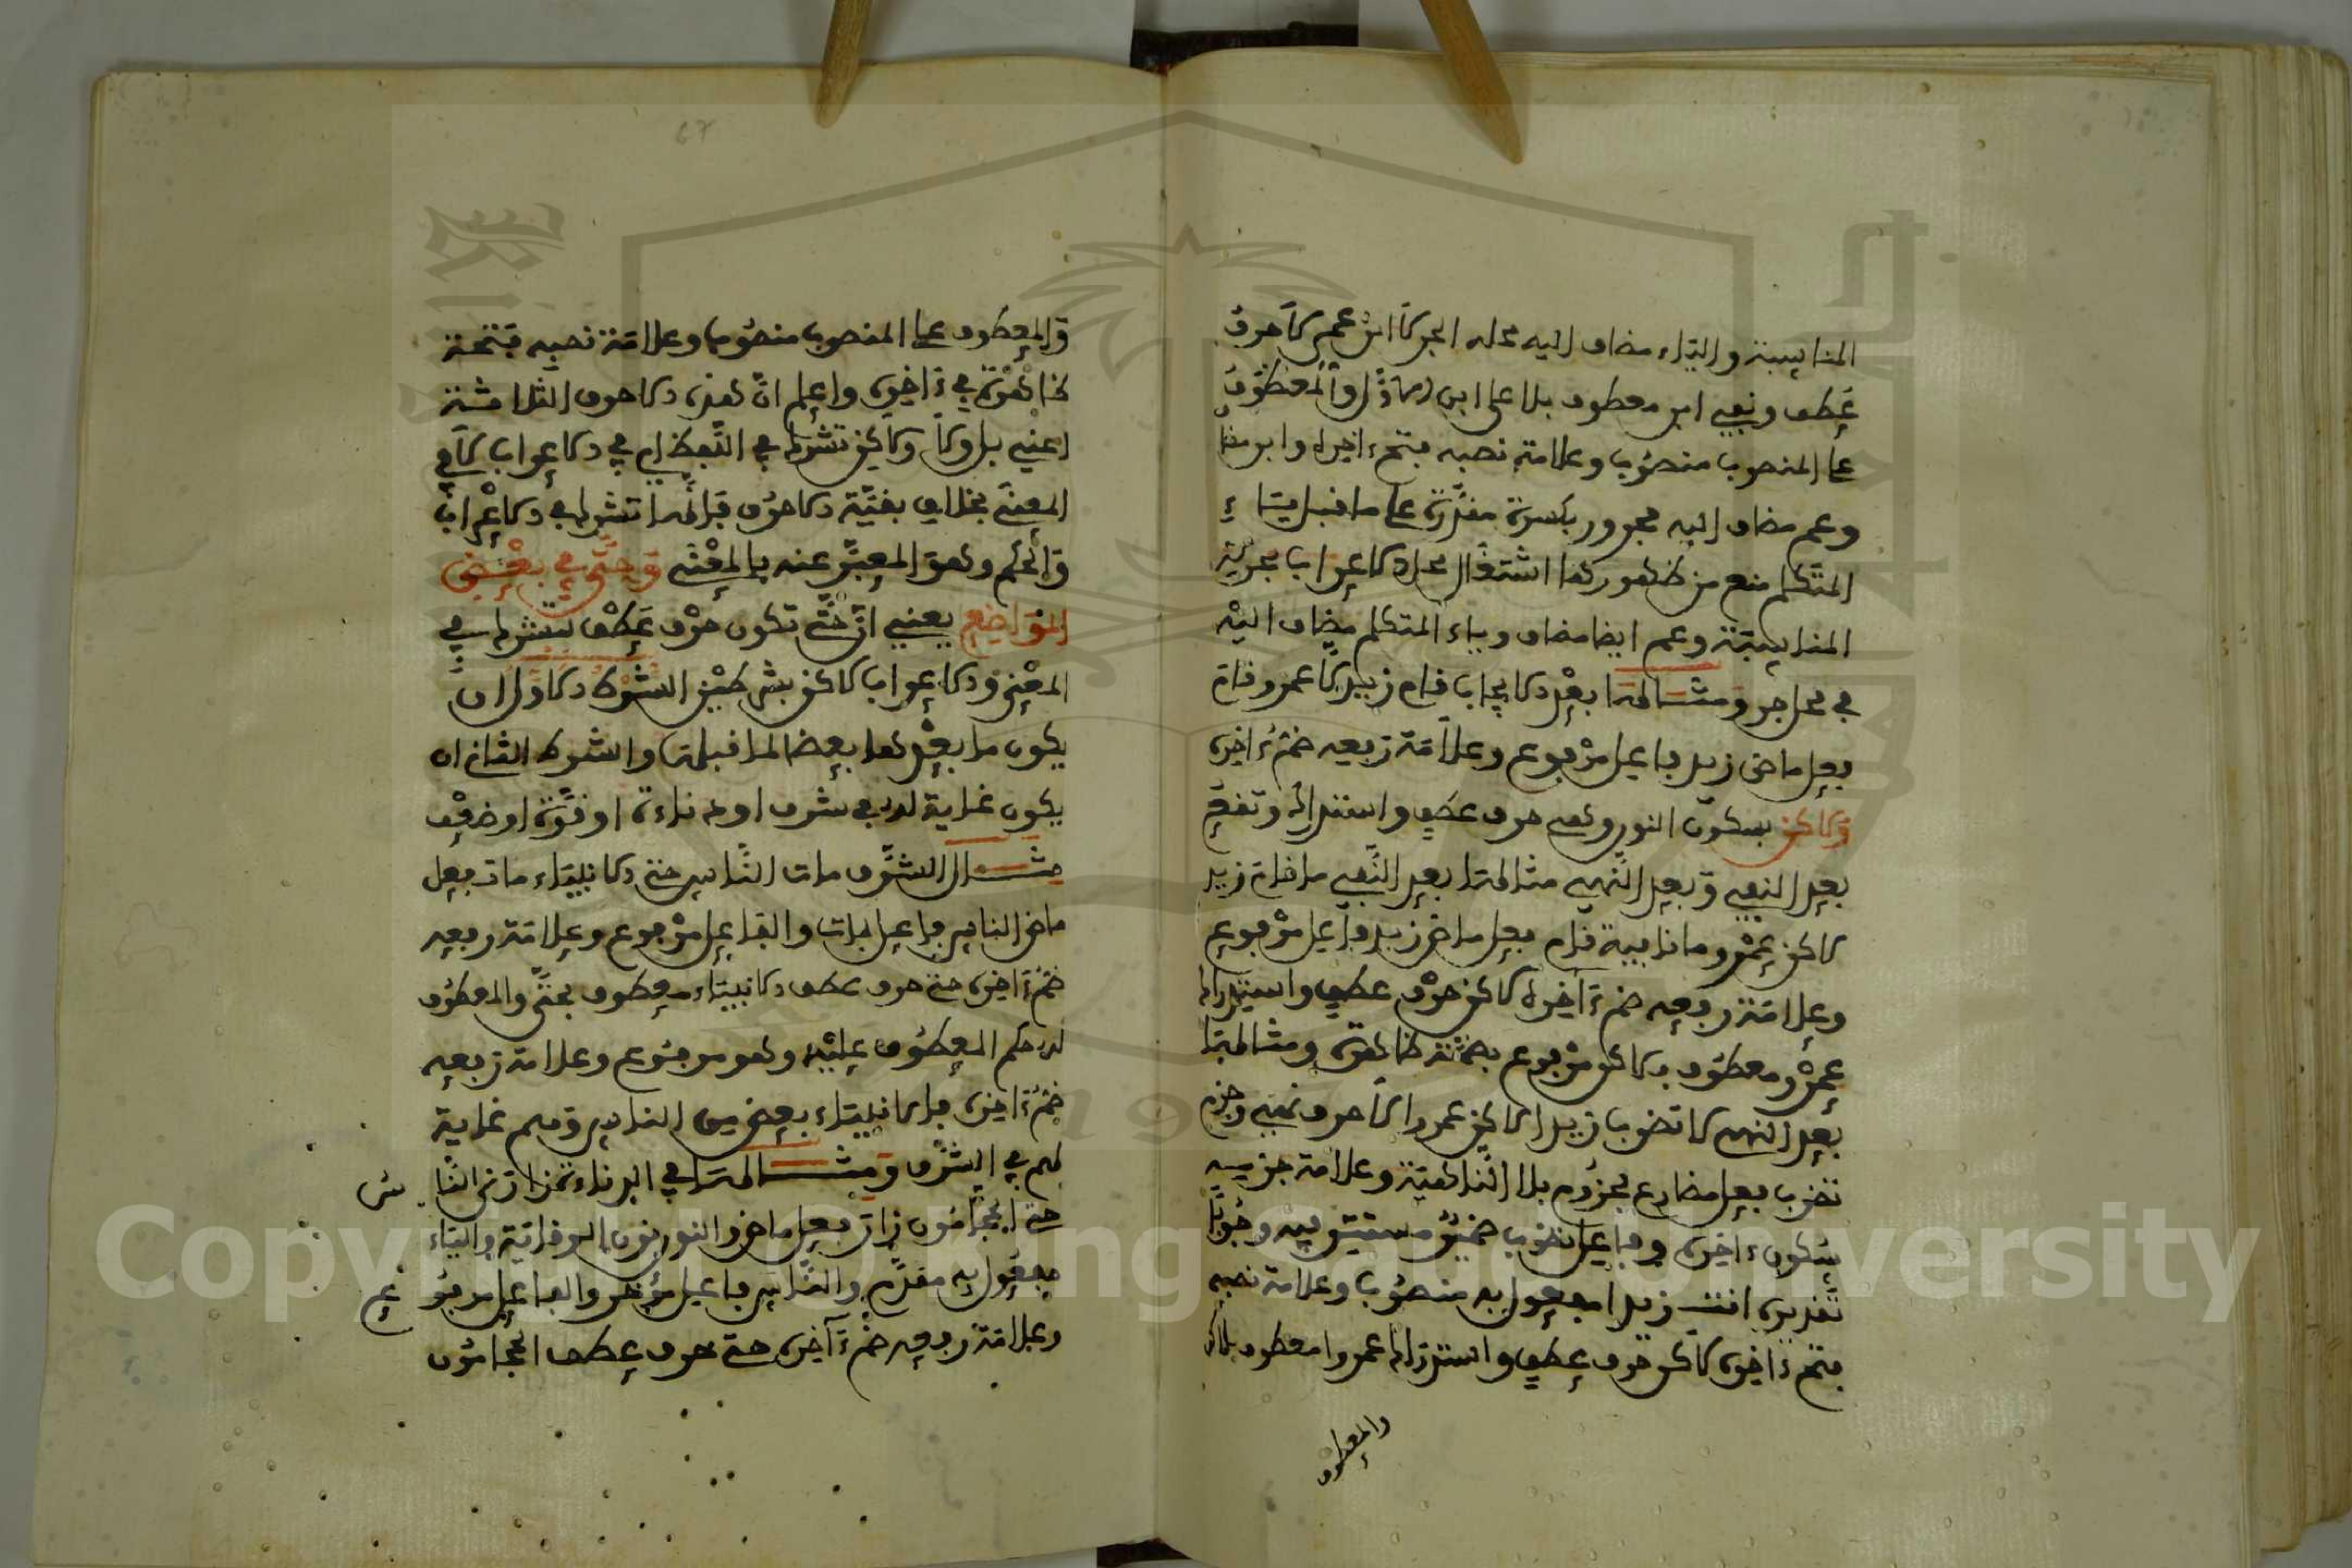 المناسبة والياء مضاف إليه محله الجر لا ابن عمي لا حرف
عطف ونفي ابن معطوف بلا على ابن والمعطوف
على المنصوب منصوب وعلامة نصبه فتح ءاخره وابن مضا
وعم مضاف إليه مجرور بكسرة مقدرة على ما قبل ياء
المتكلم منع من ظهورها اشتغال محل الاعراب بحركة
المناسبة وعم ايضا مضاف وياء المتكلم مضاف اليه
في محل جر ومثالها بعد الايجاب قام زيد لا عمرو قام
فعل ماض زيد فاعل مرفوع وعلامة رفعه ضم ءاخره
ولاكن بسكون النون وهي حرف عطف واستدراك وتقع
بعد النفي وبعد النهي مثالها بعد النفي ما قام زيد
لاكن عمرو ما نافية قام فعل ماض زيد فاعل مرفوع
وعلامة رفعه ضم ءاخره لاكن حرف عطف واستدراك
عمرو معطوف بلاكن مرفوع بضمة ظاهرة ومثالها
بعد النهي لا تضرب زيدا لاكن عمروا لا حرف نهي وجزم
تضرب فعل مضارع مجزوم بلا الناهية وعلامة جزمه
سكون ءاخره وفاعل تضرب ضمير مستتر فيه وجوبا
تقديره انت زيدا مفعول به منصوب وعلامة نصبه
فتح ءاخره لاكن حرف عطف واستدراك عمروا معطوف بلاكن
والمعطوف
67
والمعطوف على المنصوب منصوب وعلامة نصبه فتحة
ظاهرة في ءاخره واعلم ان هذه الاحرف الثلاثة
اعني بل ولا ولاكن تشرك في اللفظ اي في الاعراب لا في
المعنى بخلاف بقية الاحرف فانها تشرك في الاعراب
والحكم وهو المعبر عنه بالمعنى وحتى في بعض
المواضع يعني ان حتى تكون حرف عطف تشرك في
المعنى والاعراب لاكن بشرطين الشرط الاول ان
يكون ما بعدها بعضا لما قبلها والشرط الثاني ان
يكون غاية له في شرف او دناءة او قوة او ضعف
مثال الشرف مات الناس حتى الانبياء مات فعل
ماض الناس فاعل مات والفاعل مرفوع وعلامة رفعه
ضم ءاخره حتى حرف عطف الانبياء معطوف بحتى والمعطوف
له حكم المعطوف عليه وهو مرفوع وعلامة رفعه
ضم ءاخره فالانبياء بعض من الناس وهم غاية
لهم في الشرف ومثالها في الدناءة زارني النا س
حتى الحجامون زار فعل ماض والنون نون الوقاية والياء
مفعول به مقدم والناس فاعل مؤخر والفاعل مرفو ع
وعلامة رفعه ضم ءاخره حتى حرف عطف الحجامون
Copyright © King Saud University